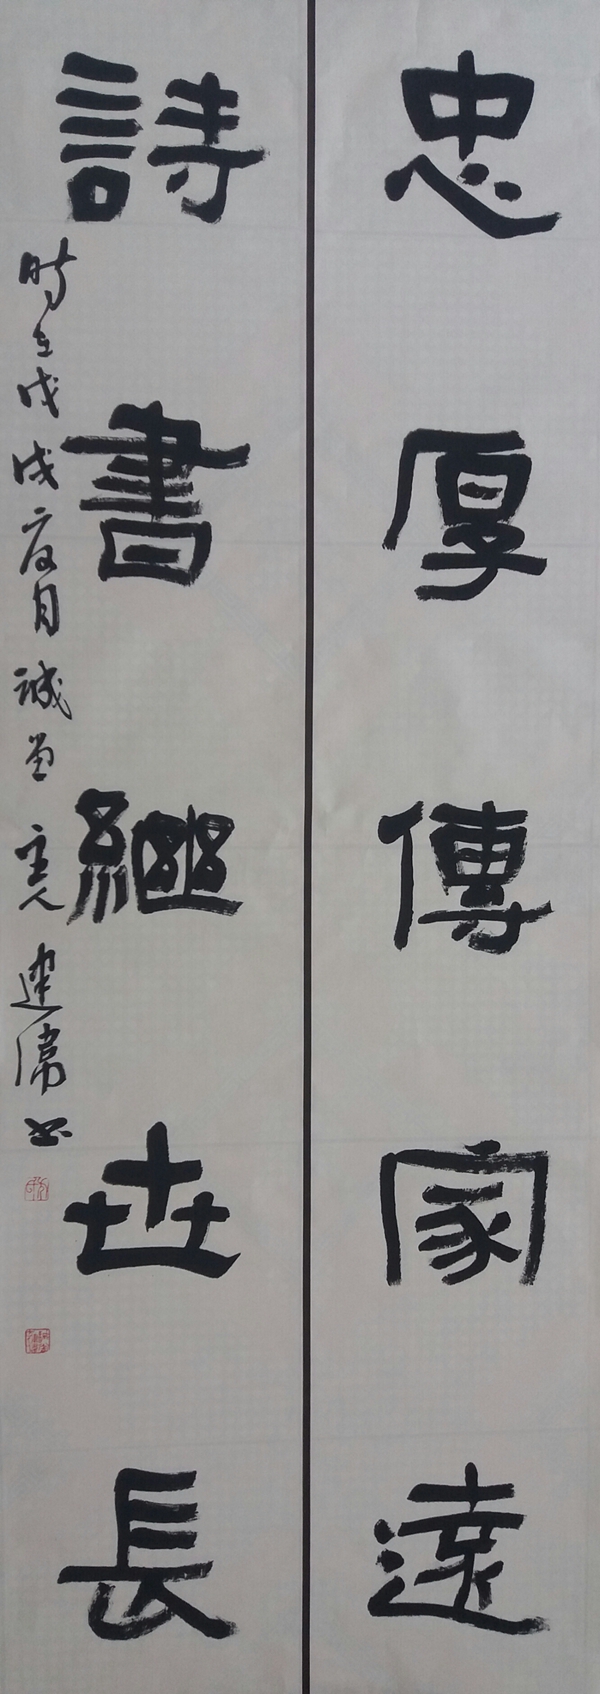 忠厚傳家遠
詩書繼世長
時在戊戌夏月誠昌主人建儒書